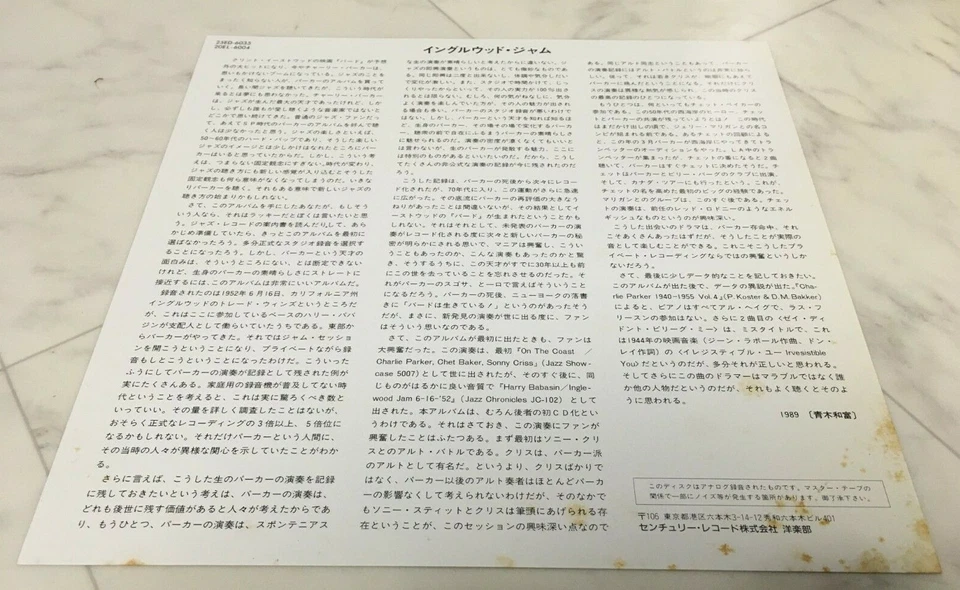 23ED-6033
20EL-6004
イングルウッド・ジャム
クリント・イーストウッドの映画『バード』が予想
外の大ヒットになり、今やチャーリー・パーカーは、
思いもかけないブームになっている。ジャズのことを
まったく知らない人が、パーカーのアルバムを買って
いく。長い間ジャズを聴いてきたが、こういう時代が
来るとは夢にも思わなかった。チャーリー・パーカー
は、ジャズが生んだ最大の天才であったけれど、しか
し、必ずしも誰もが愛し聴くような音楽家ではないと
どこかで思い続けてきた。普通のジャズ・ファンだっ
て、あえてSP時代のパーカーのアルバムを好んで聴
く人は少なかったと思う。ジャズの楽しさといえば、
50~60年代のハード・バップであり、そうした楽しい
ジャズのイメージとは少しかけはなれたところにパー
カーはいると思っていたからだ。しかし、こういう考
えは、つまらない固定観念にすぎない。時代が変わり、
ジャズの聴き方にも新しい感覚が入り込むとそうした
固定観念も何ら意味がなくなってしまうのだ。いきな
りパーカーを聴く。それもある意味で新しいジャズの
聴き方の始まりかもしれない。
さて、このアルバムを手にしたあなたが、もしそう
いう人なら、それはラッキーだとぼくは言いたいと思
う。ジャズ・レコードの案内書を読んだりして、あら
かじめ準備していたら、きっとこのアルバムを最初に
選ばなかったろう。多分正式なスタジオ録音を選択す
ることになったろう。しかし、パーカーという天才の
面白みは、そういうところにない、とは断定できない
けれど、生身のパーカーの素晴らしさにストレートに
接近するには、このアルバムは非常にいいアルバムだ。
録音されたのは1952年6月16日、カリフォルニア州
イングルウッドのトレード・ウィンズというところだ
が、これはここに参加しているベースのハリー・ババ
ジンが支配人として働らいていたうちである。東部か
らパーカーがやってきた。それではジャム・セッショ
ンを開こうということになり、プライベートながら録
音もしとこうということになったわけだ。こういった
ふうにしてパーカーの演奏が記録として残された例が
実にたくさんある。家庭用の録音機が普及してない時
代ということを考えると、これは実に驚ろくべき数と
いっていい。その量を詳しく調査したことはないが、
おそらく正式なレコーディングの3倍以上、5倍位に
なるかもしれない。それだけパーカーという人間に、
その当時の人々が異様な関心を示していたことがわか
る。
さらに言えば、こうした生のパーカーの演奏を記録
に残しておきたいという考えは、パーカーの演奏は、
どれも後世に残す価値があると人々が考えたからであ
り、もうひとつ、パーカーの演奏は、スポンテニアス
な生の演奏が素晴らしいと考えたからに違いない。ジャ
ズの即興演奏というものは、とても微妙なものであ
る。同じ即興は二度と出来ないし、体調や気分しだい
で変化が激しい。また、スタジオで時間かけて、じっ
くりやったからといって、その人の実力が100%出さ
れるとは限らない。むしろ、何の気がねなしに、気分
よく演奏を楽しんでいた方が、その人の魅力が出され
る場合も多い。パーカーのスタジオ録音が悪いわけで
はない。しかし、パーカーという天才を知れば知るほ
ど、生身のパーカー、その場その場で変化するパーカ
ー、聴衆の前で自在にふるまうパーカーの素晴らしさ
に魅せられるのだ。演奏の密度が濃くなくてもいいと
は言わないが、生のパーカーが発散する魅力、ここに
は特別のものがあるといいたいのだ。だから、こうし
てたくさんの非公式な演奏の記録が今に残されたのだ
ろう。
こうした記録は、パーカーの死後から次々にレコー
ド化されたが、70年代に入り、この運動がさらに急速
に広がった。その底流にパーカーの再評価の大きなう
ねりがあったことは間違いないが、その結果としてイ
ーストウッドの『バード』が生まれたということかも
しれない。それはそれとして、未発表のパーカーの演
奏がレコード化される度に次々と新しいパーカーの秘
密が明らかにされる思いで、マニアは興奮し、こうい
うこともあったのか、こんな演奏もあったのかと驚
き、そうするうちに、この天才がすでに30年以上も前
にこの世を去っていることを忘れさせるのだった。そ
れがパーカーのスゴサ、と一口で言えばそういうこと
になるだろう。パーカーの死後、ニューヨークの落書
きに「バードは生きている!」というのがあったそう
だが、まさに、新発見の演奏が世に出る度に、ファン
はそういう思いなのである。
さて、このアルバムが最初に出たときも、ファンは
大興奮だった。この演奏は、最初『On The Coast /
Charlie Parker, Chet Baker, Sonny Criss』(Jazz Show-
case 5007)として世に出されたが、そのすぐ後に、同
じものがはるかに良い音質で『Harry Babasin/Ingle-
wood Jam 6-16-'52』(Jazz Chronicles JC-102)として
出された。本アルバムは、むろん後者の初CD化という
わけである。それはさておき、この演奏にファンが
興奮したことはふたつある。まず最初はソニー・クリ
スとのアルト・バトルである。クリスは、パーカー派
のアルトとして有名だ。というより、クリスばかりで
はなく、パーカー以後のアルト奏者はほとんどパーカ
ーの影響なくして考えられないわけだが、そのなかで
もソニー・スティットとクリスは筆頭にあげられる存
在ということが、このセッションの興味深い点なので
ある。同じアルト同志ということもあって、パーカー
もうひとつは、何といってもチェット・ベイカーの
参加である。この50年代の西海岸のヒーロー、チェッ
トとパーカーの共演が残っていようとは? この時代
はまだかけ出しの頃で、ジェリー・マリガンとの名コ
ンビが始まれる前である。あるチェットの回顧による
と、この年の3月パーカーが西海岸にやってきてトラ
ンペッターのオーディションをやった。しみ中のトラ
ンペッターが集まったが、チェットの番になると2曲
聴いて、パーカーはすぐチェットに決めたそうだ。チ
ェットはパーカーとビリー・バーグのクラブに出演、
そして、カナダ・ツアーにも行ったという。これが、
チェットの名を高めた最初のビッグの経験であった。
マリガンとのグループは、このすぐ後である。チェッ
トの演奏は、前任のレッド・ロドニーのようなエネル
ギッシュなものというのが興味深い。
こうした出会いのドラマは、パーカー存命中、それ
こそあくさんあったはずだが、そうしたことが実際の
音として楽しむことができる。これこそこうしたプラ
イベート・レコーディングならではの興奮というしか
ないだろう。
さて、最後に少しデータ的なことを記しておきたい。
このアルバムが出た後で、データの異説が出た。『Cha-
rlie Parker 1940-1955 Vol.4』(P. Koster & D.M. Bakker)
によると、ピアノはすべてアル・ヘイグで、ラス・フ
リースンの参加はない。さらに2曲目の〈ゼイ・ディ
ドント・ビリーグ・ミー〉は、ミスタイトルで、これ
は1944年の映画音楽(ジーン・ラポール作曲、ドン・
レイ作詞)の〈イレジスティブル・ユー Irvesistible
You〉だというのだが、多分それが正しいと思われる。
そしてさらにこの曲のドラマーはマラブルではなく誰
か他の人物だというのだが、それもよく聴くとそのよ
うに思われる。
1989 〔青木和富〕
このディスクはアナログ録音されたものです。マスター・テープの
関係で一部にノイズ等が発生する箇所があります。御了承下さい。
〒106 東京都港区六本木3-14-12秀和六本木ビル401
センチュリー・レコード株式会社 洋楽部